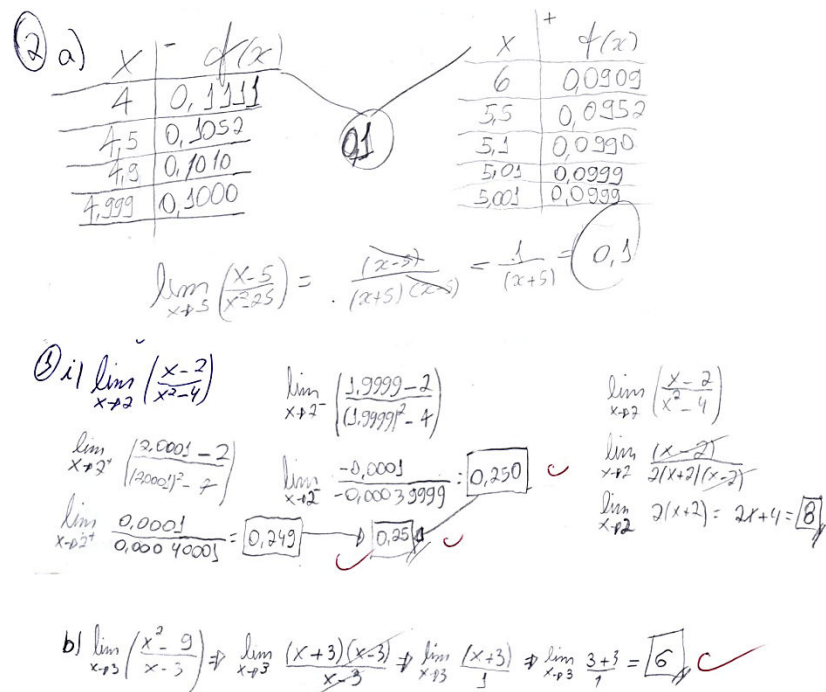 2 a)
x | - f(x)
4 | 0,1111
4,5 | 0,1052
4,9 | 0,1010
4,999 | 0,1000
0,1
x | + f(x)
6 | 0,0909
5,5 | 0,0952
5,1 | 0,0990
5,01 | 0,0999
5,001 | 0,0999
lim x→5 (x-5 / x²-25) = (x-5) / (x+5)(x-5) = 1 / (x+5) = 0,1
3 i) lim x→2 (x-2 / x²-4)
lim x→2⁺ (2,0001 - 2 / (2,0001)² - 4)
lim x→2⁺ 0,0001 / 0,00040001 = 0,249 → 0,25
lim x→2⁻ (1,9999 - 2 / (1,9999)² - 4)
lim x→2⁻ -0,0001 / -0,00039999 = 0,250
lim x→2 (x-2 / x²-4)
lim x→2 (x-2) / 2(x+2)(x-2)
lim x→2 2(x+2) = 2x+4 = 8
b) lim x→3 (x²-9 / x-3) ⇒ lim x→3 (x+3)(x-3) / x-3 ⇒ lim x→3 (x+3) / 1 ⇒ lim x→3 3+3 / 1 = 6